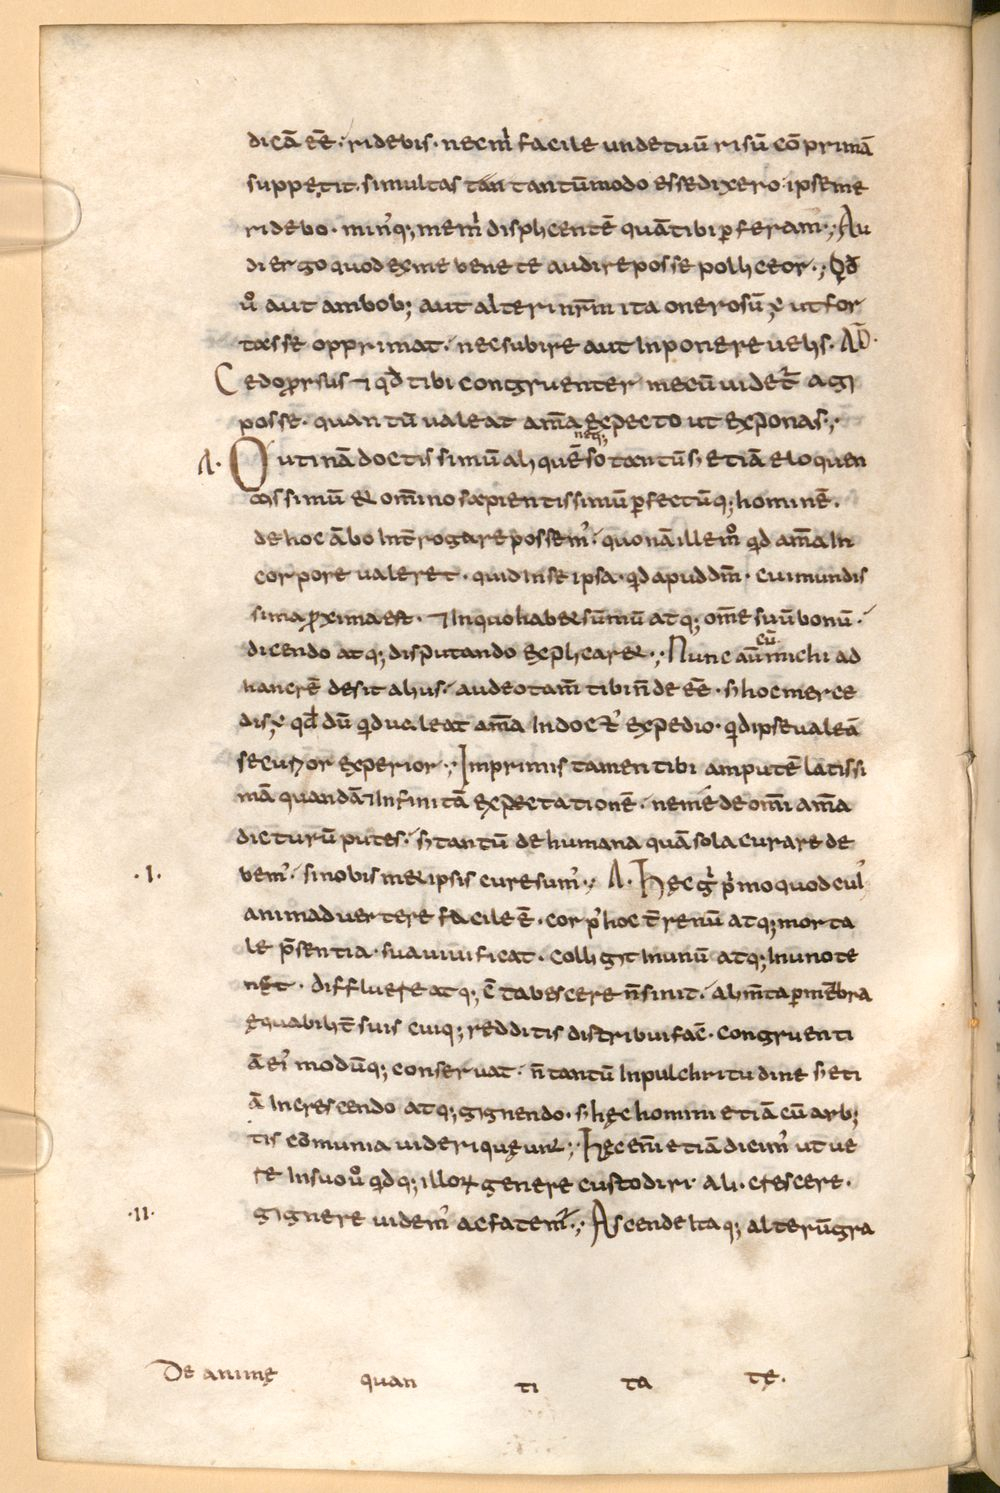 dicā eē · ridebis · nec m̄ facile unde tuū risū cō primā
suppetit. simul tas tan tantūmodo esse dixero · ipse me
ridebo · minꝰq; me m̄ displicentē quā tibi ꝑferam ·; Au
di ergo quod ex me bene te audire posse polliceor ·; Qđ
u° aut ambob; aut alteri nr̄m ita onerosū ÷ ut for
tasse opprimat · nec subire aut inponere uelis · AD̄ ·
Cedo ꝓrsus ⁊ qđ tibi congruenter mecū uidet̄ agi
posse · quantū ualeat am̄a expecto ut exponas ·;
A · O utinā doctissimū aliquē neq; so tantū s; etiā eloquen
tissimū & om̄ino sapientissimū ꝑfectūq; hominē ·
de hoc ābo int̄rogare possemꝰ · quonā ille m° qd am̄a in
corpore ualeret · quid in se ipsa · qd apud dm̄ · cui mundis
sima ꝓxima est · ⁊ in quo hab& sūmū atq; om̄e suū bonū ·
dicendo atq; disputando explicar& ·; Nunc aū cū michi ad
hanc rē desit alius · audeo tam̄ tibi n̄ deeē · s; hoc merce
dis ÷ qđ dū qd ualeat am̄a indoctꝰ expedio · qd ipse ualeā
securꝰor experior ·; Imprimis tamen tibi amputē latissi
mā quandā ⁊ infinitā expectationē · ne mē de om̄i am̄a
dicturū putes · s; tantū de humana quā sola curare de
bemꝰ · si nobismet ipsis cure sumꝰ ·; A · Hęc g̊ p̄mo quod cuiꝰ
·I·
animaduertere facile ē · corpꝰ hoc t̄renū atq; morta
le p̄sentia · sua uiuificat · colligit in unū atq; in uno te
net · diffluere atq; c̄tabescere n̄ sinit · alim̄ta ꝑ mēbra
ęquabilit̄ suis cuiq; redditis distribui fac̄ · congruenti
ā eiꝰ modūq; conseruat · n̄ tantū in pulchritudine s; eti
ā in crescendo atq; gignendo · s; hęc homini etiā cū arb;
tis cōmunia uideri quęunt ·; Hęc em̄ etiā dicimꝰ uiue
re in suo u° qdq; illoꝝ genere custodiri · ali · crescere ·
gignere uidemꝰ ac fatemꝰ ·; Ascende itaq; alterū gra
·II·
De animę quan ti ta tę.